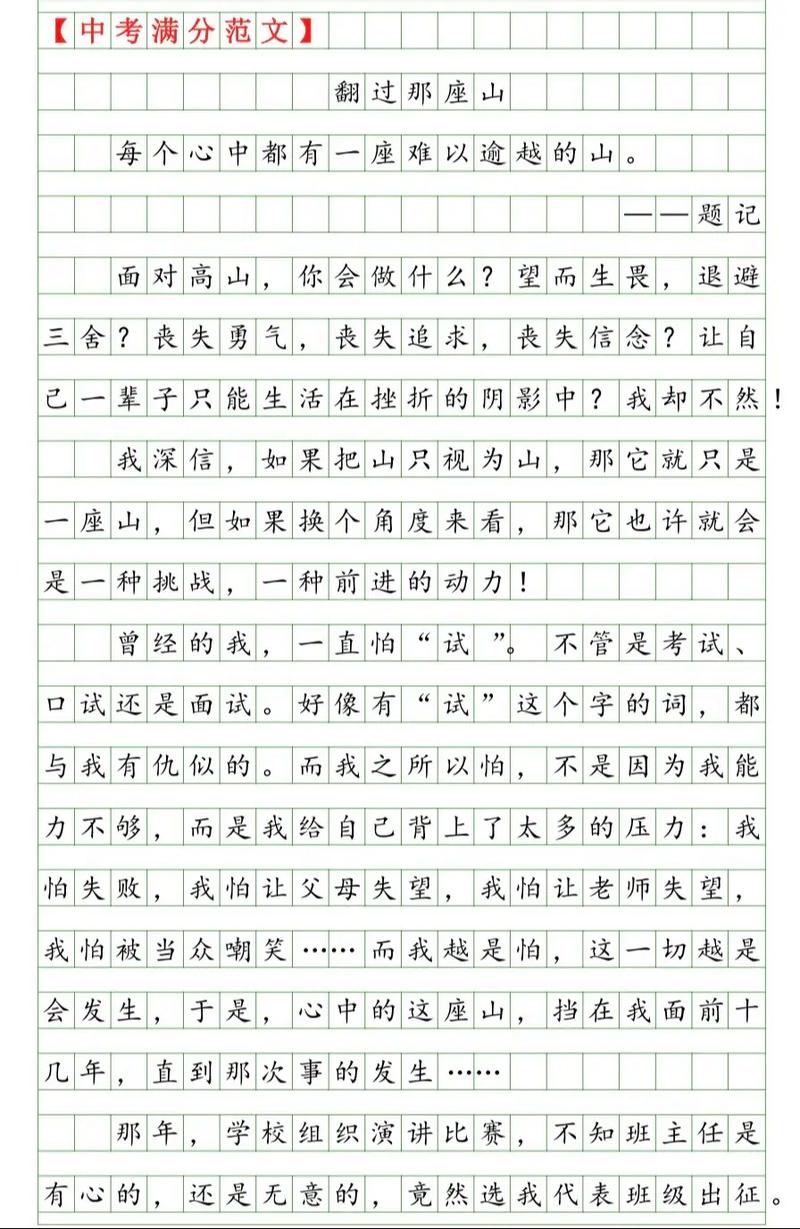 【中考满分范文】
翻过那座山
每个心中都有一座难以逾越的山。
——题记
面对高山，你会做什么？望而生畏，退避
三舍？丧失勇气，丧失追求，丧失信念？让自
己一辈子只能生活在挫折的阴影中？我却不然！
我深信，如果把山只视为山，那它就只是
一座山，但如果换个角度来看，那它也许就会
是一种挑战，一种前进的动力！
曾经的我，一直怕“试”。不管是考试、
口试还是面试。好像有“试”这个字的词，都
与我有仇似的。而我之所以怕，不是因为我能
力不够，而是我给自己背上了太多的压力：我
怕失败，我怕让父母失望，我怕让老师失望，
我怕被当众嘲笑……而我越是怕，这一切越是
会发生，于是，心中的这座山，挡在我面前十
几年，直到那次事的发生……
那年，学校组织演讲比赛，不知班主任是
有心的，还是无意的，竟然选我代表班级出征。